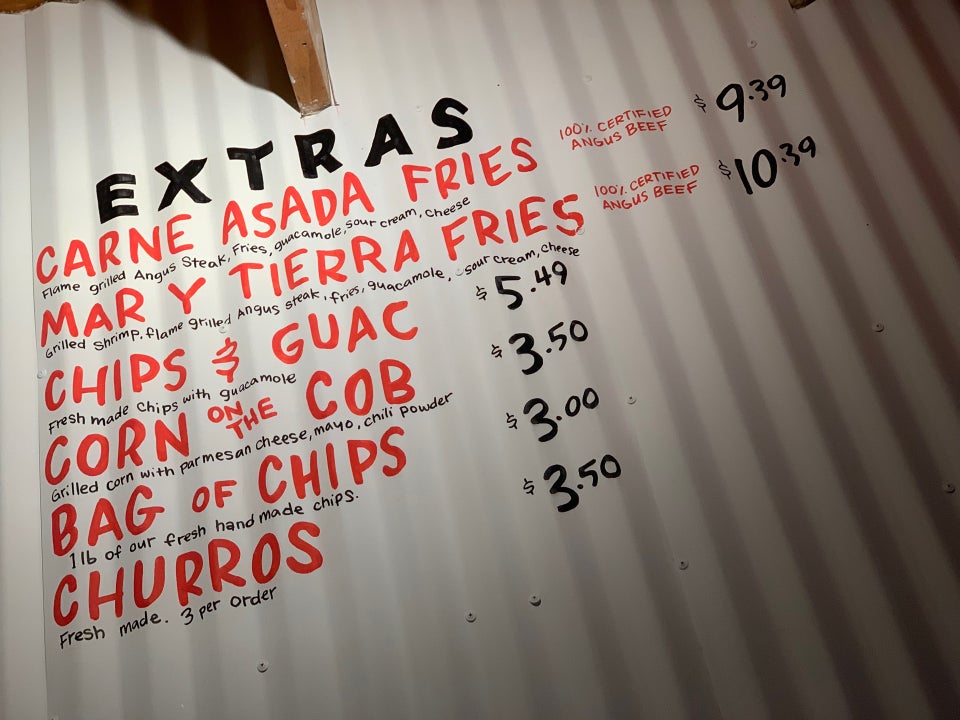 EXTRAS
CARNE ASADA FRIES 100% CERTIFIED ANGUS BEEF $9.39
Flame grilled Angus Steak, Fries, guacamole, sour cream, cheese
MAR Y TIERRA FRIES 100% CERTIFIED ANGUS BEEF $10.39
Grilled Shrimp, flame grilled Angus steak, fries, guacamole, sour cream, cheese
CHIPS & GUAC $5.49
Fresh made chips with guacamole
CORN ON THE COB $3.50
Grilled corn with parmesan cheese, mayo, chili powder
BAG OF CHIPS $3.00
1 lb of our fresh hand made chips.
CHURROS $3.50
Fresh made. 3 per order